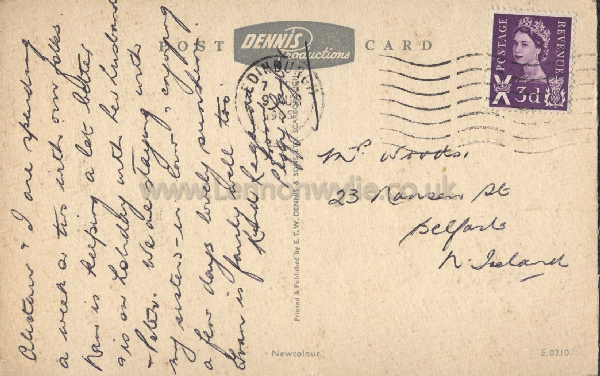 POST CARD
DENNIS
Productions
EDINBURGH
7
POSTAGE REVENUE
3d
Alistair & I are spending
a week or two with our folks.
Nan is keeping a lot better
& is on holiday with her husband
& Peter. We are staying with
my sister-in-law & enjoying
a few days lovely sunshine
Gran is fairly well too.
Kind Regards
Mrs Woods,
23 Nansen St
Belfast
N. Ireland
Printed & Published by E. T. W. DENNIS & SONS LTD SCARBOROUGH
www.Lennonwylie.co.uk
Newcolour
E.0210.